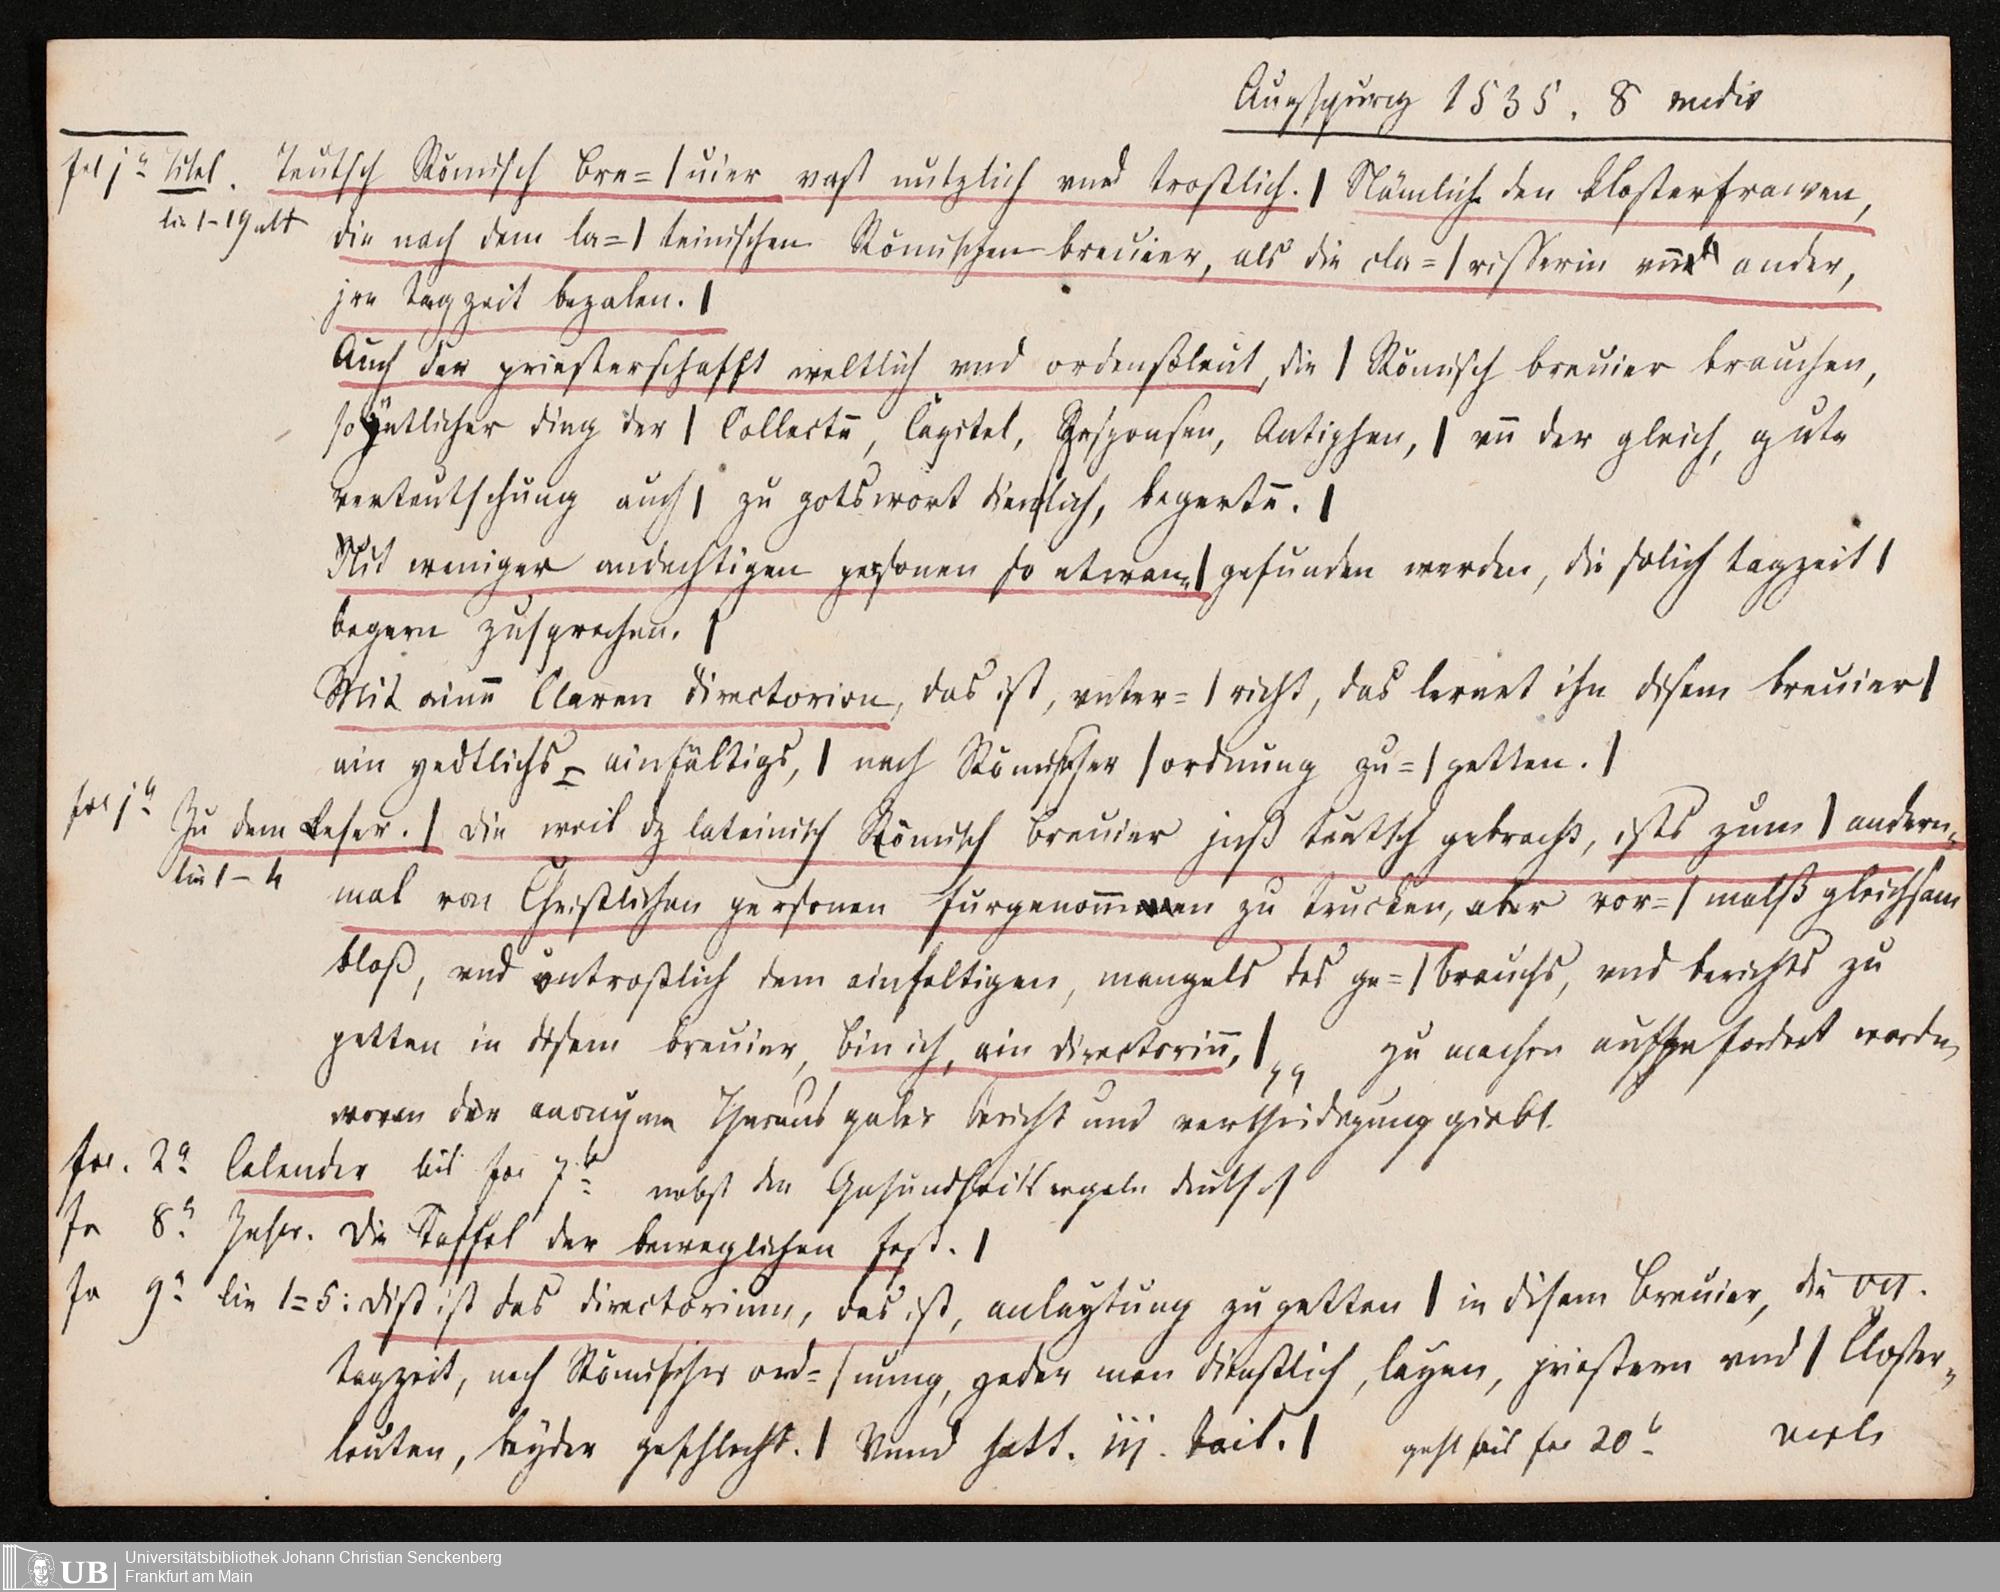 Augsspurg 1535. 8 medio
fol jª Titel. Teutsch Römisch bre=|uier vast nutzlich vnd trostlich.| Nämlich den klosterfrawen,
lin 1–19 alt die nach dem la=| teinischen Römischen breuier, als die cla=|risserin vnnd ander,
jre tagzeit bezalen.|
Auch der priesterschafft weltlich vnd ordenßleut, die | Römisch breuier brauchen,
so yetlicher ding der | Collectē, Capitel, Responsen, Antiphen, | vn̄ der gleich, gute
verteutschung auch | zu gotswort dienstlich, begertē. |
Nit weniger andechtigen personen so etwan=| gefunden werden, die solich tagzeit |
begern zusprechen. |
Mit ainē Claren directorion, das ist, vnter=| richt, das lernet ihn disem breuier |
ain yedtlichs = ainfältigs, | nach Römischer | ordnung zu=| petten. |
fol jᵇ Zu dem Leser. | Die weil dz lateinisch Römisch Breuier juß teutsch gebracht, ists zum | andern=
lin 1–4 mal von Christlichen personen furgenom̄en zu trucken, aber vor=| malß gleichsam
bloß, vnd vntrostlich dem ainfaltigen, mangels des ge=| brauchs, vnd berichts zu
petten in disem breuier, bin ich, ain directoriū, | zu machen aufgefordert worden,
wovon der anonyme Herausgeber bericht und vertheidigung giebt.
fol. 2ª Calender bis fol 7ᵇ nebst den Gesundheitsregeln deutsch
fo 8ª Inscr. Die Taffel der beweglichen fest. |
fo 9ª lin 1=5: Dist ist das directorium, das ist, anlaytung zu petten | in disem Breuier, die vij.
tagzeit, nach Römischer ord=| nung, yeder man dienstlich, layen, priestern vnd | Closter=
leuten, beyder geschlecht. | Vnnd hatt. iij. tail. | geht bis fol 20ᵇ
Universitätsbibliothek Johann Christian Senckenberg
UB Frankfurt am Main